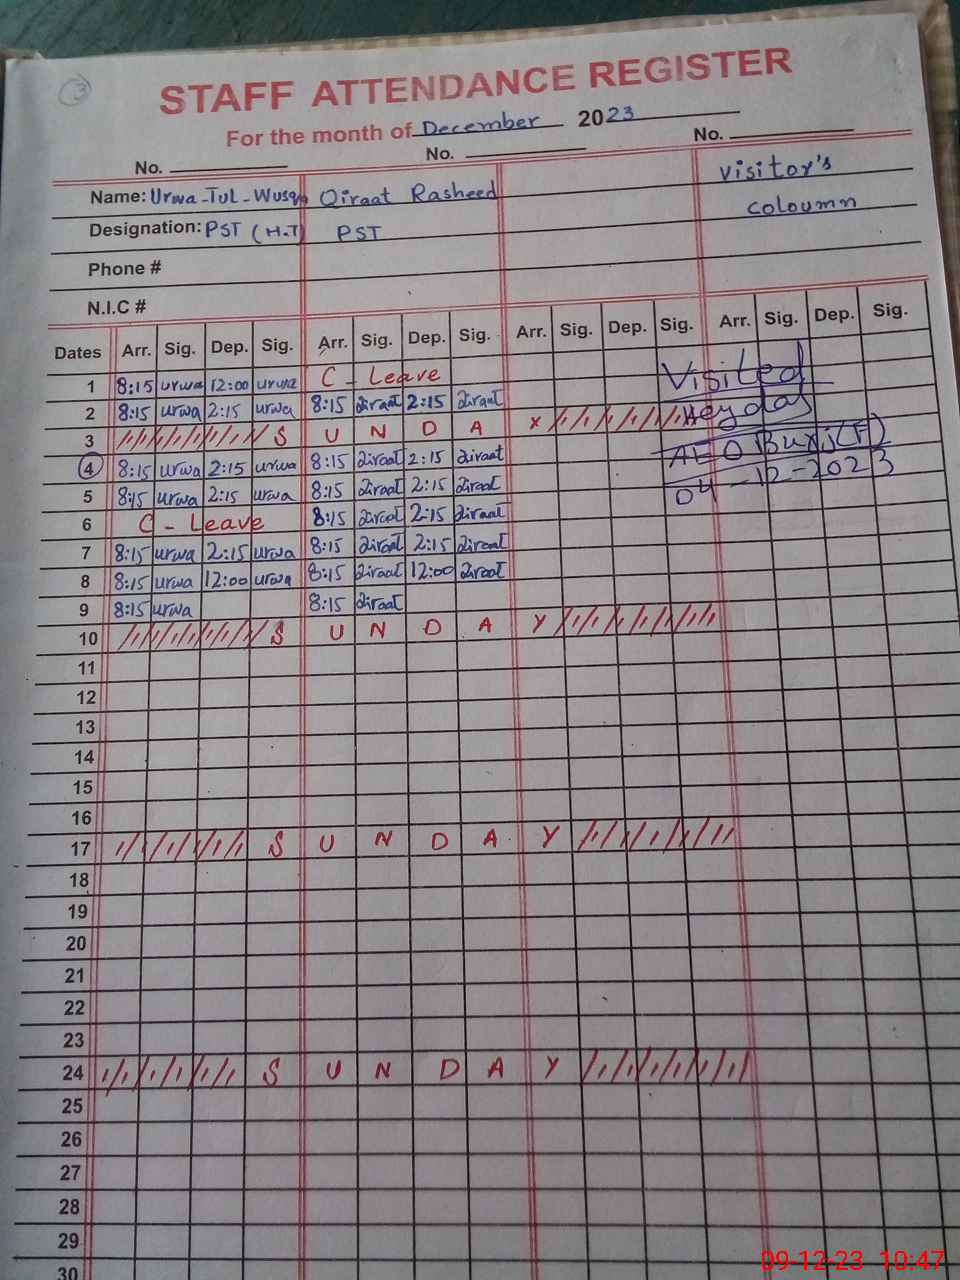 3
STAFF ATTENDANCE REGISTER
For the month of December 2023
No. No. No.
Name: Urwa-Tul-Wusqa Qiraat Rasheed visitor's
Designation: PST (H.T) PST coloumn
Phone #
N.I.C #
Dates Arr. Sig. Dep. Sig. Arr. Sig. Dep. Sig. Arr. Sig. Dep. Sig. Arr. Sig. Dep. Sig.
1 8:15 urwa 12:00 urwa C - Leave Visited
2 8:15 urwa 2:15 urwa 8:15 Qiraat 2:15 Qiraat
3 S U N D A Y AEO Burj(F)
4 8:15 urwa 2:15 urwa 8:15 Qiraat 2:15 Qiraat 04-12-2023
5 8:15 urwa 2:15 urwa 8:15 Qiraat 2:15 Qiraat
6 C - Leave 8:15 Qiraat 2:15 Qiraat
7 8:15 urwa 2:15 urwa 8:15 Qiraat 2:15 Qiraat
8 8:15 urwa 12:00 urwa 8:15 Qiraat 12:00 Qiraat
9 8:15 urwa 8:15 Qiraat
10 S U N D A Y
11
12
13
14
15
16
17 S U N D A Y
18
19
20
21
22
23
24 S U N D A Y
25
26
27
28
29
30
09-12-23 10:47